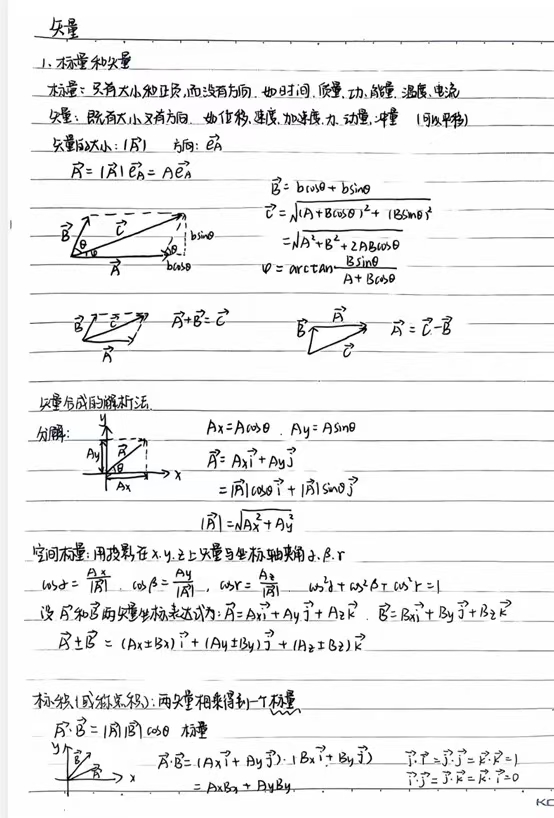 矢量
1、标量和矢量
标量：只有大小和正负，而没有方向. 如时间、质量、功、能量、温度、电流
矢量：既有大小又有方向. 如位移、速度、加速度、力、动量、冲量 (可以平移)
矢量的大小：|A⃗| 方向：e⃗A
A⃗ = |A⃗| e⃗A = A e⃗A
B⃗ = bcosθ + bsinθ
C⃗ = √((A+Bcosθ)² + (Bsinθ)²)
= √(A²+B²+2ABcosθ)
φ = arctan Bsinθ / (A+Bcosθ)
B⃗ C⃗ θ φ A⃗ θ bsinθ bcosθ
B⃗ C⃗ A⃗ A⃗+B⃗=C⃗
B⃗ A⃗ C⃗ A⃗ = C⃗-B⃗
矢量合成的解析法.
分解： y Ay A⃗ θ Ax x
Ax=Acosθ . Ay=Asinθ
A⃗ = Axi⃗ + Ayj⃗
= |A⃗|cosθi⃗ + |A⃗|sinθj⃗
|A⃗| = √(Ax²+Ay²)
空间标量：用投影在x.y.z上矢量与坐标轴夹角α.β.γ
cosα = Ax/|A⃗| . cosβ = Ay/|A⃗| , cosγ = Az/|A⃗| cos²α+cos²β+cos²γ=1
设A⃗和B⃗两矢量坐标表达式为：A⃗=Axi⃗+Ayj⃗+Azk⃗ . B⃗=Bxi⃗+Byj⃗+Bzk⃗
A⃗±B⃗ = (Ax±Bx)i⃗+(Ay±By)j⃗+(Az±Bz)k⃗
标积(或称点积)：两矢量相乘得到一个标量
A⃗·B⃗ = |A⃗||B⃗|cosθ 标量
y B⃗ A⃗ x
A⃗·B⃗=(Axi⃗+Ayj⃗)·(Bxi⃗+Byj⃗)
= AxBx+AyBy
i⃗·i⃗=j⃗·j⃗=k⃗·k⃗=1
i⃗·j⃗=j⃗·k⃗=k⃗·i⃗=0